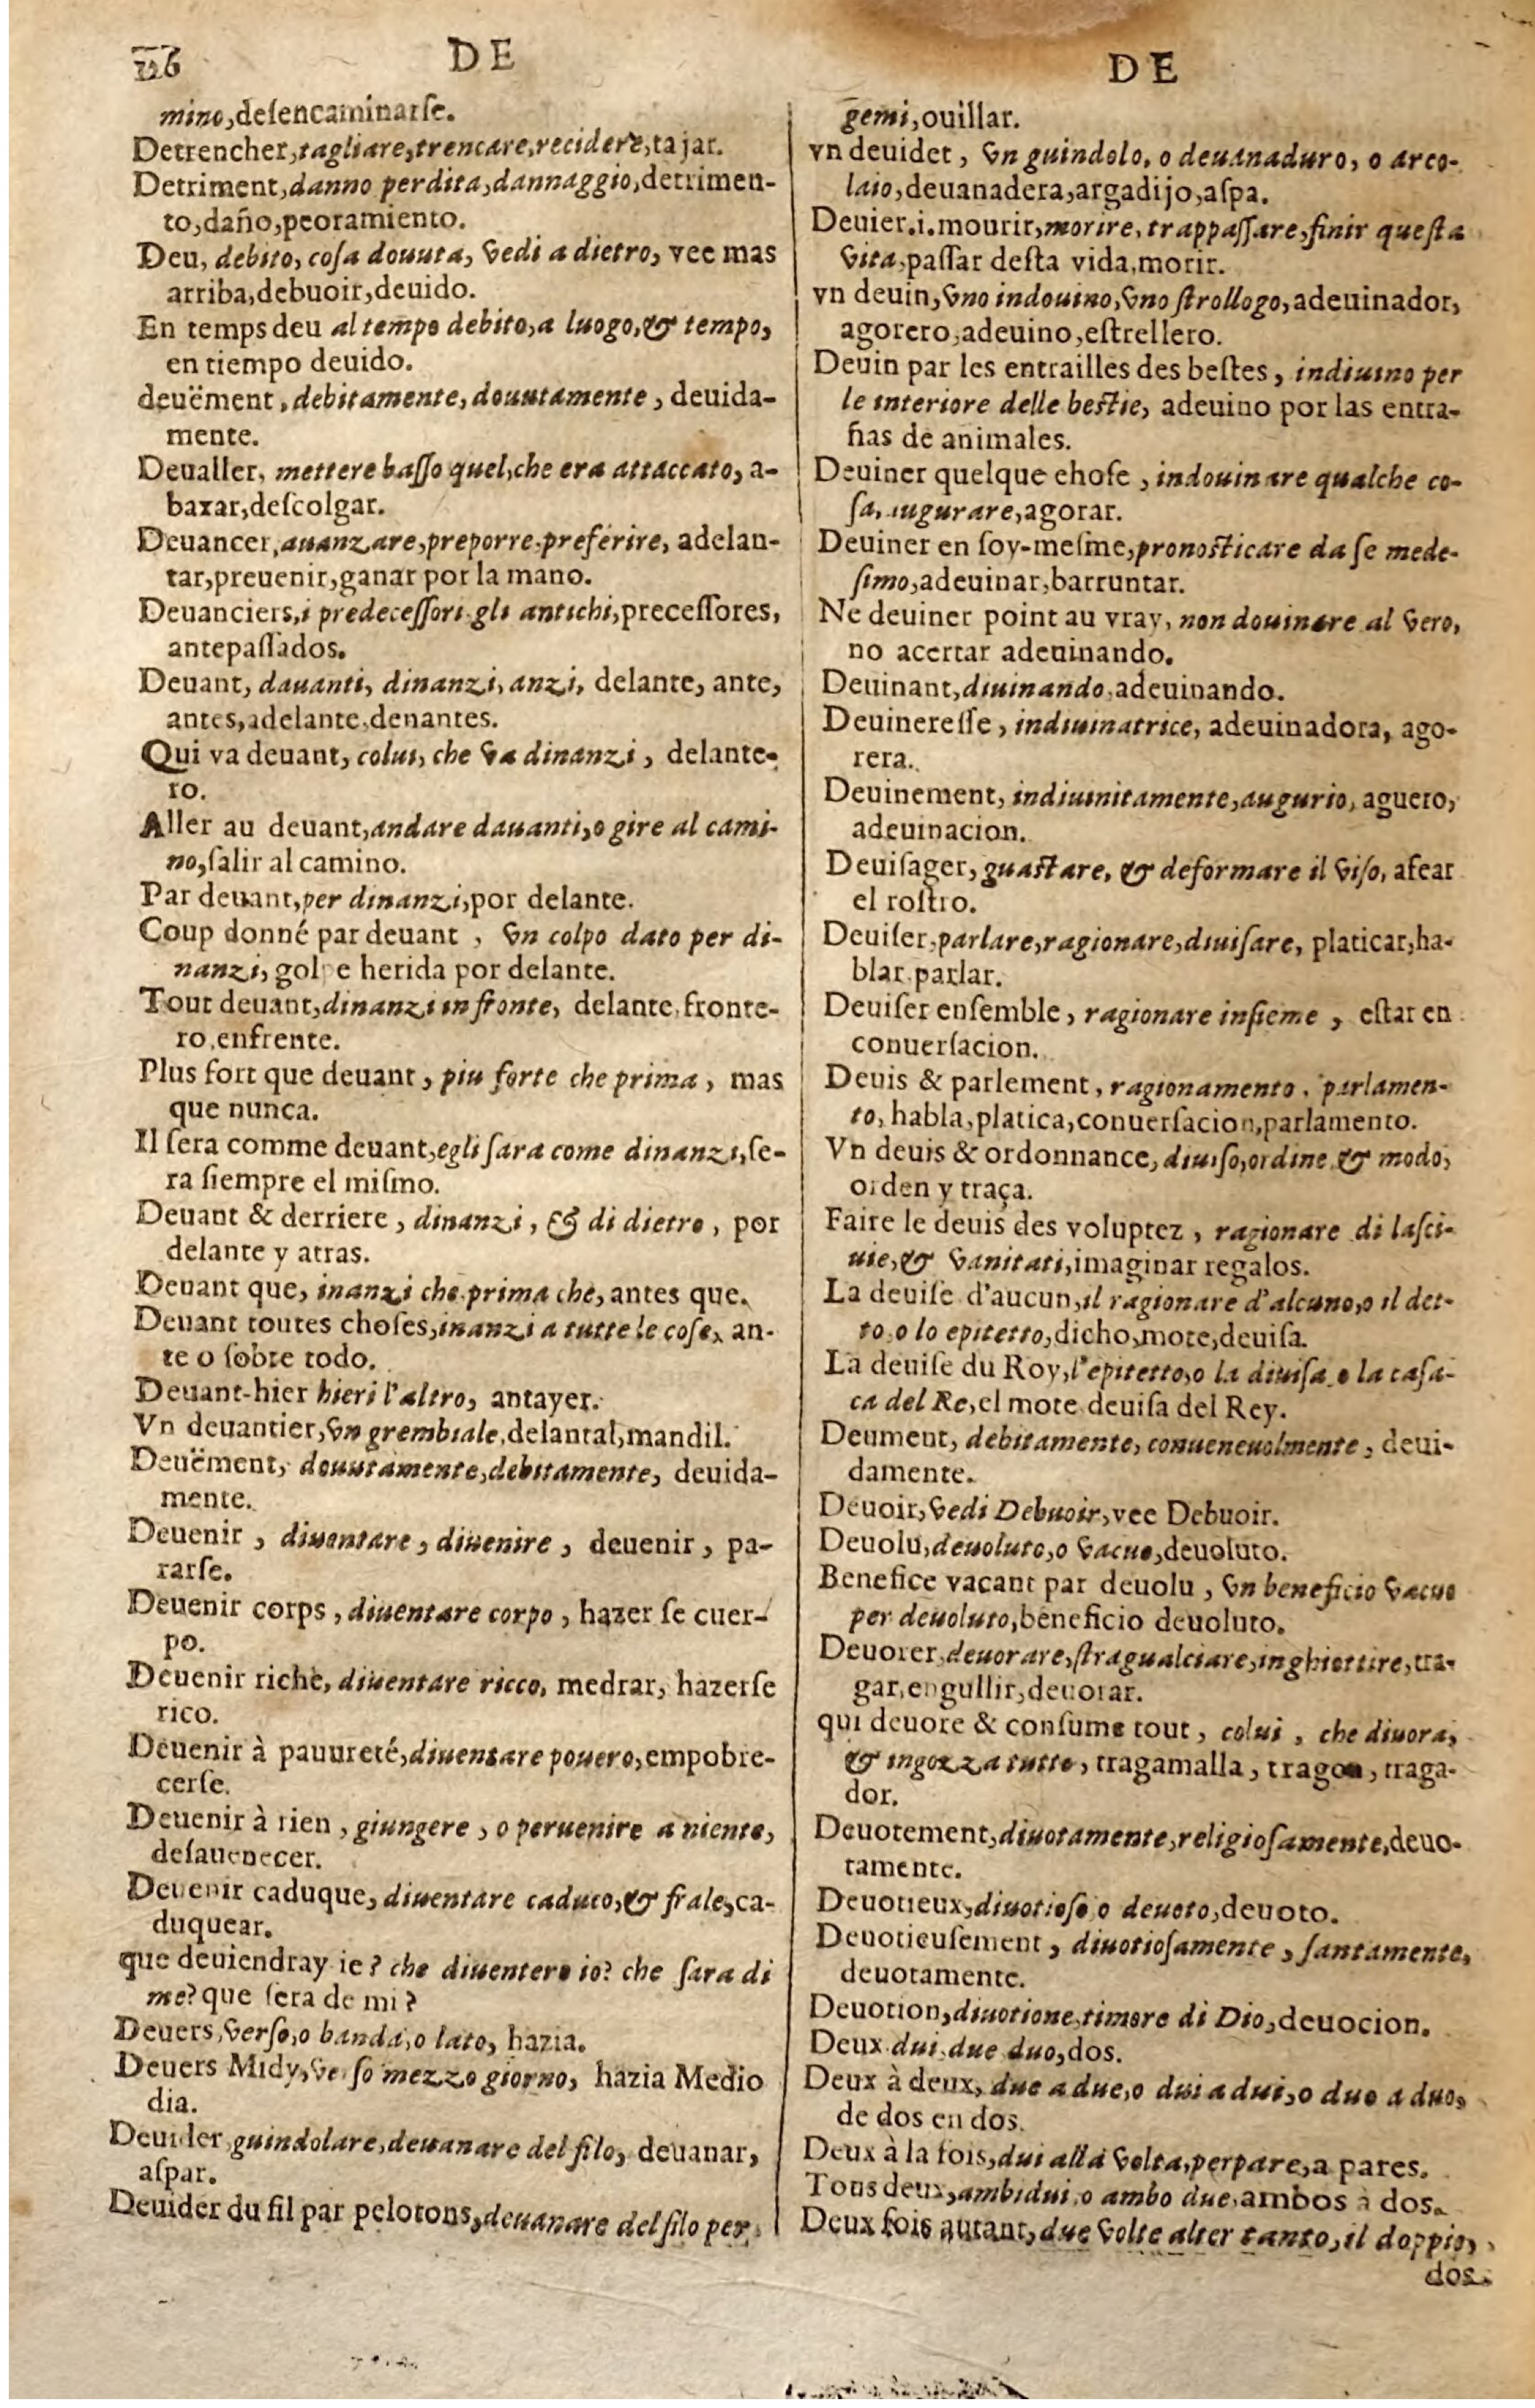 DE
mino, desencaminarse.
Detrencher, tagliare, trencare, recidere, tajar.
Detriment, danno perdita, dannaggio, detrimen-
to, daño, peoramiento.
Deu, debito, cosa douuta, vedi a dietro, vee mas
arriba, debuoir, deuido.
En temps deu al tempo debito, a luogo, & tempo,
en tiempo deuido.
deuëment, debitamente, douutamente, deuida-
mente.
Deualler, mettere basso quel, che era attaccato, a-
baxar, descolgar.
Deuancer, auanzare, preporre, preferire, adelan-
tar, preuenir, ganar por la mano.
Deuanciers, i predecessori gli antichi, precessores,
antepassados.
Deuant, dauanti, dinanzi, anzi, delante, ante,
antes, adelante, denantes.
Qui va deuant, colui, che va dinanzi, delante-
ro.
Aller au deuant, andare dauanti, o gire al cami-
no, salir al camino.
Par deuant, per dinanzi, por delante.
Coup donné par deuant, vn colpo dato per di-
nanzi, golpe herida por delante.
Tout deuant, dinanzi in fronte, delante, fronte-
ro, enfrente.
Plus fort que deuant, piu forte che prima, mas
que nunca.
Il sera comme deuant, egli sara come dinanzi, se-
ra siempre el mismo.
Deuant & derriere, dinanzi, & di dietro, por
delante y atras.
Deuant que, inanzi che prima che, antes que.
Deuant toutes choses, inanzi a tutte le cose, an-
te o sobre todo.
Deuant-hier hieri l'altro, antayer.
Vn deuantier, vn grembiale, delantal, mandil.
Deuëment, douutamente, debitamente, deuida-
mente.
Deuenir, diuentare, diuenire, deuenir, pa-
rarse.
Deuenir corps, diuentare corpo, hazer se cuer-
po.
Deuenir riche, diuentare ricco, medrar, hazerse
rico.
Deuenir à pauureté, diuentare pouero, empobre-
cerse.
Deuenir à rien, giungere, o peruenire a niente,
desauenecer.
Deuenir caduque, diuentare caduco, & frale, ca-
duquear.
que deuiendray ie? che diuentero io? che sara di
me? que sera de mi?
Deuers, verso, o banda, o lato, hazia.
Deuers Midy, verso mezzo giorno, hazia Medio
dia.
Deuider guindolare, deuanare del filo, deuanar,
aspar.
Deuider du fil par pelotons, deuanare del filo per
DE
gemi, ouillar.
vn deuidet, vn guindolo, o deuanaduro, o arco-
laio, deuanadera, argadijo, aspa.
Deuier.i.mourir, morire, trappassare, finir questa
vita, passar desta vida, morir.
vn deuin, vno indouino, vno strollogo, adeuinador,
agorero, adeuino, estrellero.
Deuin par les entrailles des bestes, indiuino per
le interiore delle bestie, adeuino por las entra-
ñas de animales.
Deuiner quelque chose, indouinare qualche co-
sa, augurare, agorar.
Deuiner en soy-mesme, pronosticare da se mede-
simo, adeuinar, barruntar.
Ne deuiner point au vray, non douinare al vero,
no acertar adeuinando.
Deuinant, diuinando, adeuinando.
Deuineresse, indiuinatrice, adeuinadora, ago-
rera.
Deuinement, indiuinitamente, augurio, aguero,
adeuinacion.
Deuisager, guastare, & deformare il viso, afear
el rostro.
Deuiser, parlare, ragionare, diuisare, platicar, ha-
blar parlar.
Deuiser ensemble, ragionare insieme, estar en
conuersacion.
Deuis & parlement, ragionamento, parlamen-
to, habla, platica, conuersacion, parlamento.
Vn deuis & ordonnance, diuiso, ordine & modo,
orden y traça.
Faire le deuis des voluptez, ragionare di lasci-
uie, & vanitati, imaginar regalos.
La deuise d'aucun, il ragionare d'alcuno, o il det-
to, o lo epitetto, dicho, mote, deuisa.
La deuise du Roy, l'epitetto, o la diuisa, o la casa-
ca del Re, el mote deuisa del Rey.
Deument, debitamente, conueneuolmente, deui-
damente.
Deuoir, vedi Debuoir, vee Debuoir.
Deuolu, deuoluto, o vacuo, deuoluto.
Benefice vacant par deuolu, vn beneficio vacuo
per deuoluto, beneficio deuoluto.
Deuorer, deuorare, stragualciare, inghiottire, tra-
gar, engullir, deuorar.
qui deuore & consume tout, colui, che diuora,
& ingozza tutto, tragamalla, tragon, traga-
dor.
Deuotement, diuotamente, religiosamente, deuo-
tamente.
Deuotieux, diuotioso, o deuoto, deuoto.
Deuotieusement, diuotiosamente, santamente,
deuotamente.
Deuotion, diuotione, timore di Dio, deuocion.
Deux dui, due duo, dos.
Deux à deux, due a due, o dui a dui, o duo a duo,
de dos en dos.
Deux à la fois, dui alla volta, per pare, a pares.
Tous deux, ambidui, o ambo due, ambos a dos.
Deux fois autant, due volte alter tanto, il doppio,
dos